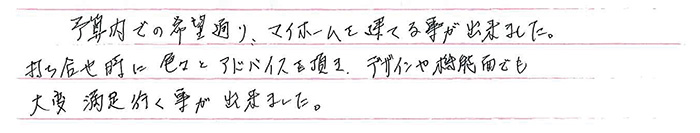 予算内での希望通り、マイホームを建てる事が出来ました。
打ち合せ時に色々とアドバイスを頂き、デザインや機能面でも
大変満足行く事が出来ました。